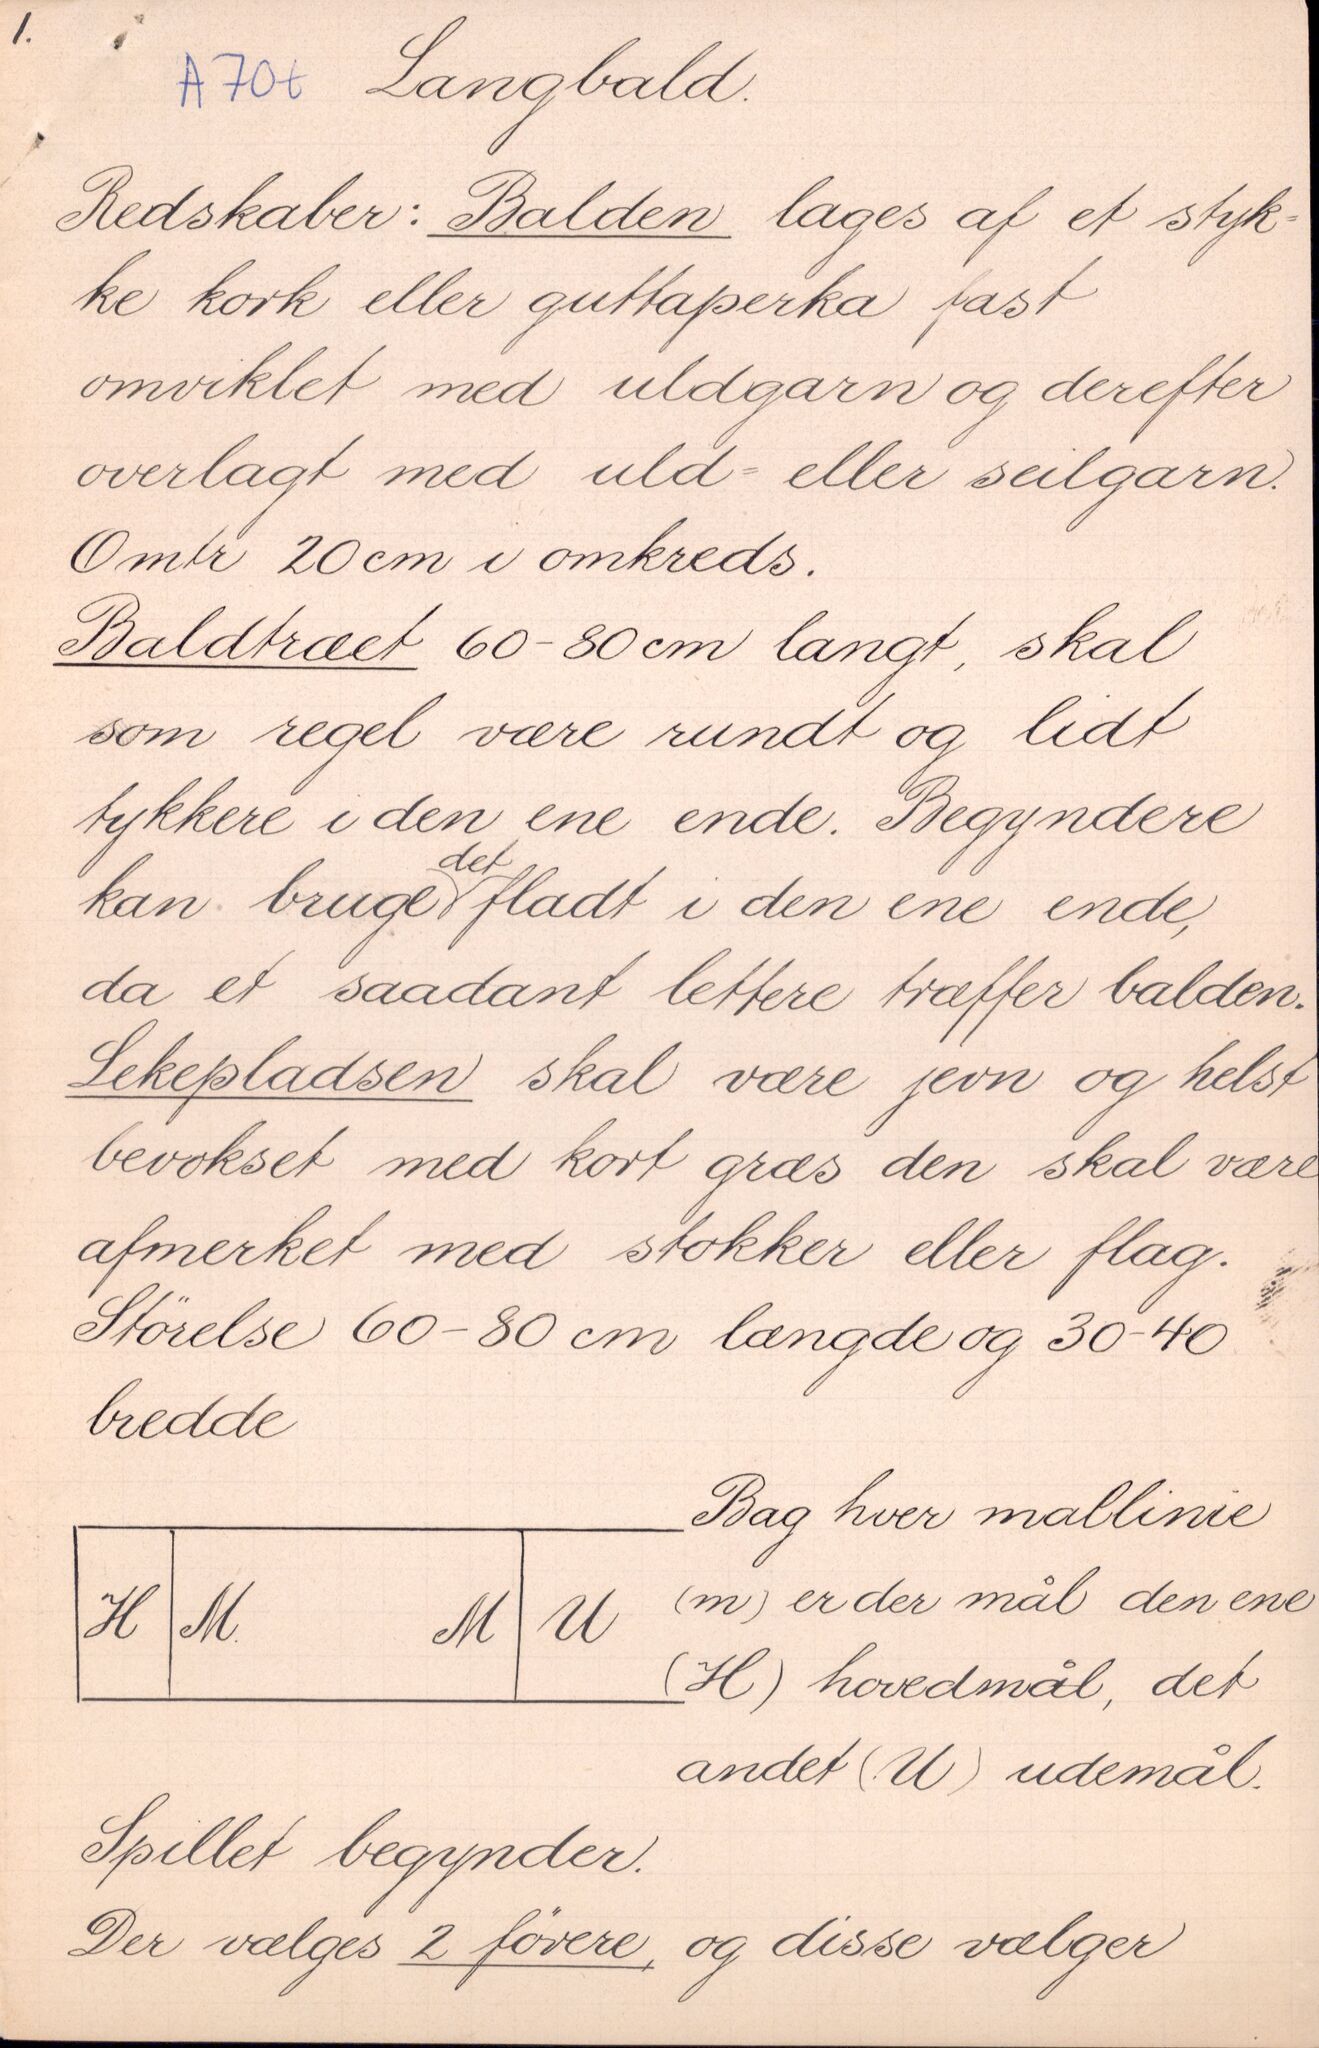 1.
A 70t Langbald.
Redskaber: Balden lages af et styk=
ke kork eller guttaperka fast
omviklet med uldgarn og derefter
overlagt med uld= eller seilgarn.
Omtr 20 cm i omkreds.
Baldtræet 60-80 cm langt, skal
som regel være rundt og lidt
tykkere i den ene ende. Begyndere
det
kan bruge fladt i den ene ende,
da et saadant lettere træffer balden.
Lekepladsen skal være jevn og helst
bevokset med kort græs den skal være
afmerket med stokker eller flag.
Störelse 60-80 cm længde og 30-40
bredde
Bag hver mallinie
H M. M U (m) er der mål den ene
(H) hovedmål, det
andet (U) udemål.
Spillet begynder.
Der vælges 2 förere, og disse vælger